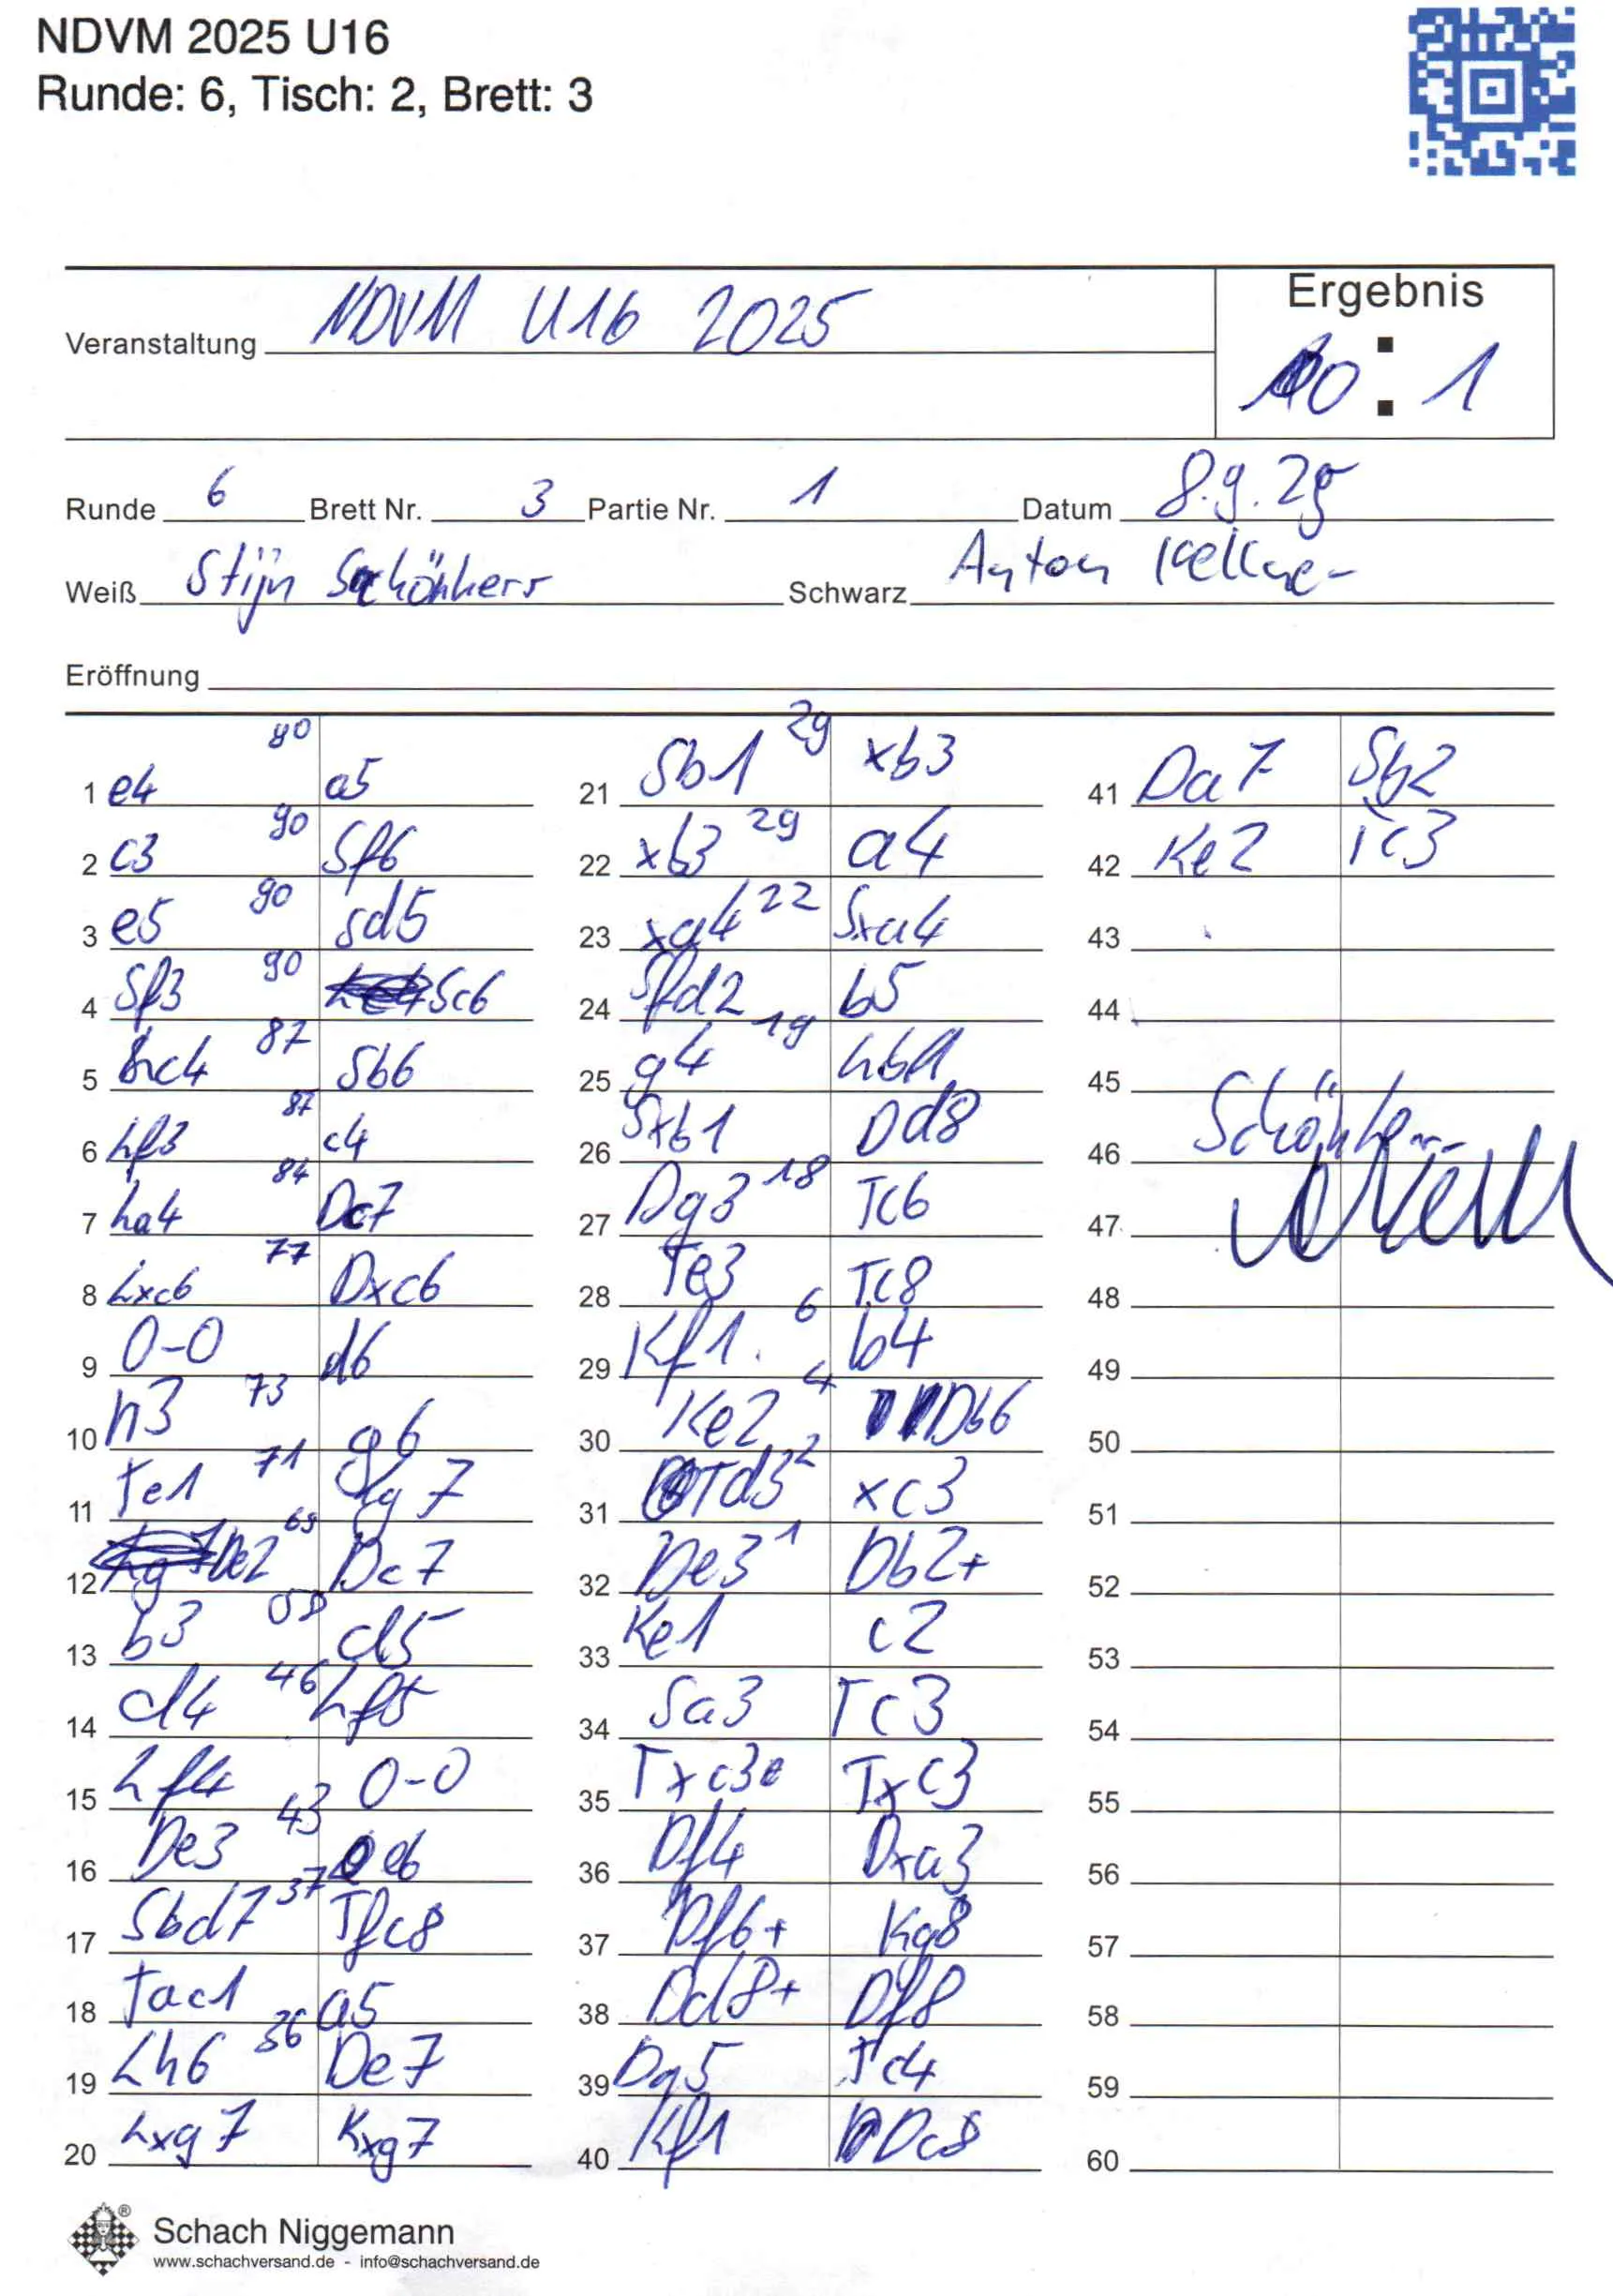 NDVM 2025 U16
Runde: 6, Tisch: 2, Brett: 3
Veranstaltung NDVM U16 2025
Ergebnis
0 : 1
Runde 6 Brett Nr. 3 Partie Nr. 1 Datum 8.9.25
Weiß Stijn Schönherr Schwarz Anton Kellner
Eröffnung
1 e4 90 a5
2 c3 90 Sf6
3 e5 90 Sd5
4 Sf3 90 Sc6
5 Lc4 87 Sb6
6 Lf3 87 c4
7 La4 84 Dc7
8 Lxc6 77 Dxc6
9 0-0 d6
10 h3 73 g6
11 Te1 71 Lg7
12 De2 69 Dc7
13 b3 58 d5
14 d4 46 Lf5
15 Lf4 0-0
16 De3 43 e6
17 Sbd7 37 Tfc8
18 Tac1 a5
19 Lh6 36 De7
20 Lxg7 Kxg7
21 Sb1 29 xb3
22 xb3 29 a4
23 xa4 22 Sxa4
24 Sfd2 b5
25 g4 19 Lb1
26 Sxb1 Dd8
27 Dg3 18 Tc6
28 Te3 Tc8
29 Kf1 6 b4
30 Ke2 4 Db6
31 Td3 2 xc3
32 De3 1 Db2+
33 Ke1 c2
34 Sa3 Tc3
35 Txc3 Txc3
36 Df4 Dxa3
37 Df6+ Kg8
38 Dd8+ Df8
39 Dg5 Tc4
40 Kf1 Dc8
41 Da7 Sb2
42 Ke2 Tc3
43
44
45
46 Schönherr
47
48
49
50
51
52
53
54
55
56
57
58
59
60
Schach Niggemann
www.schachversand.de - info@schachversand.de